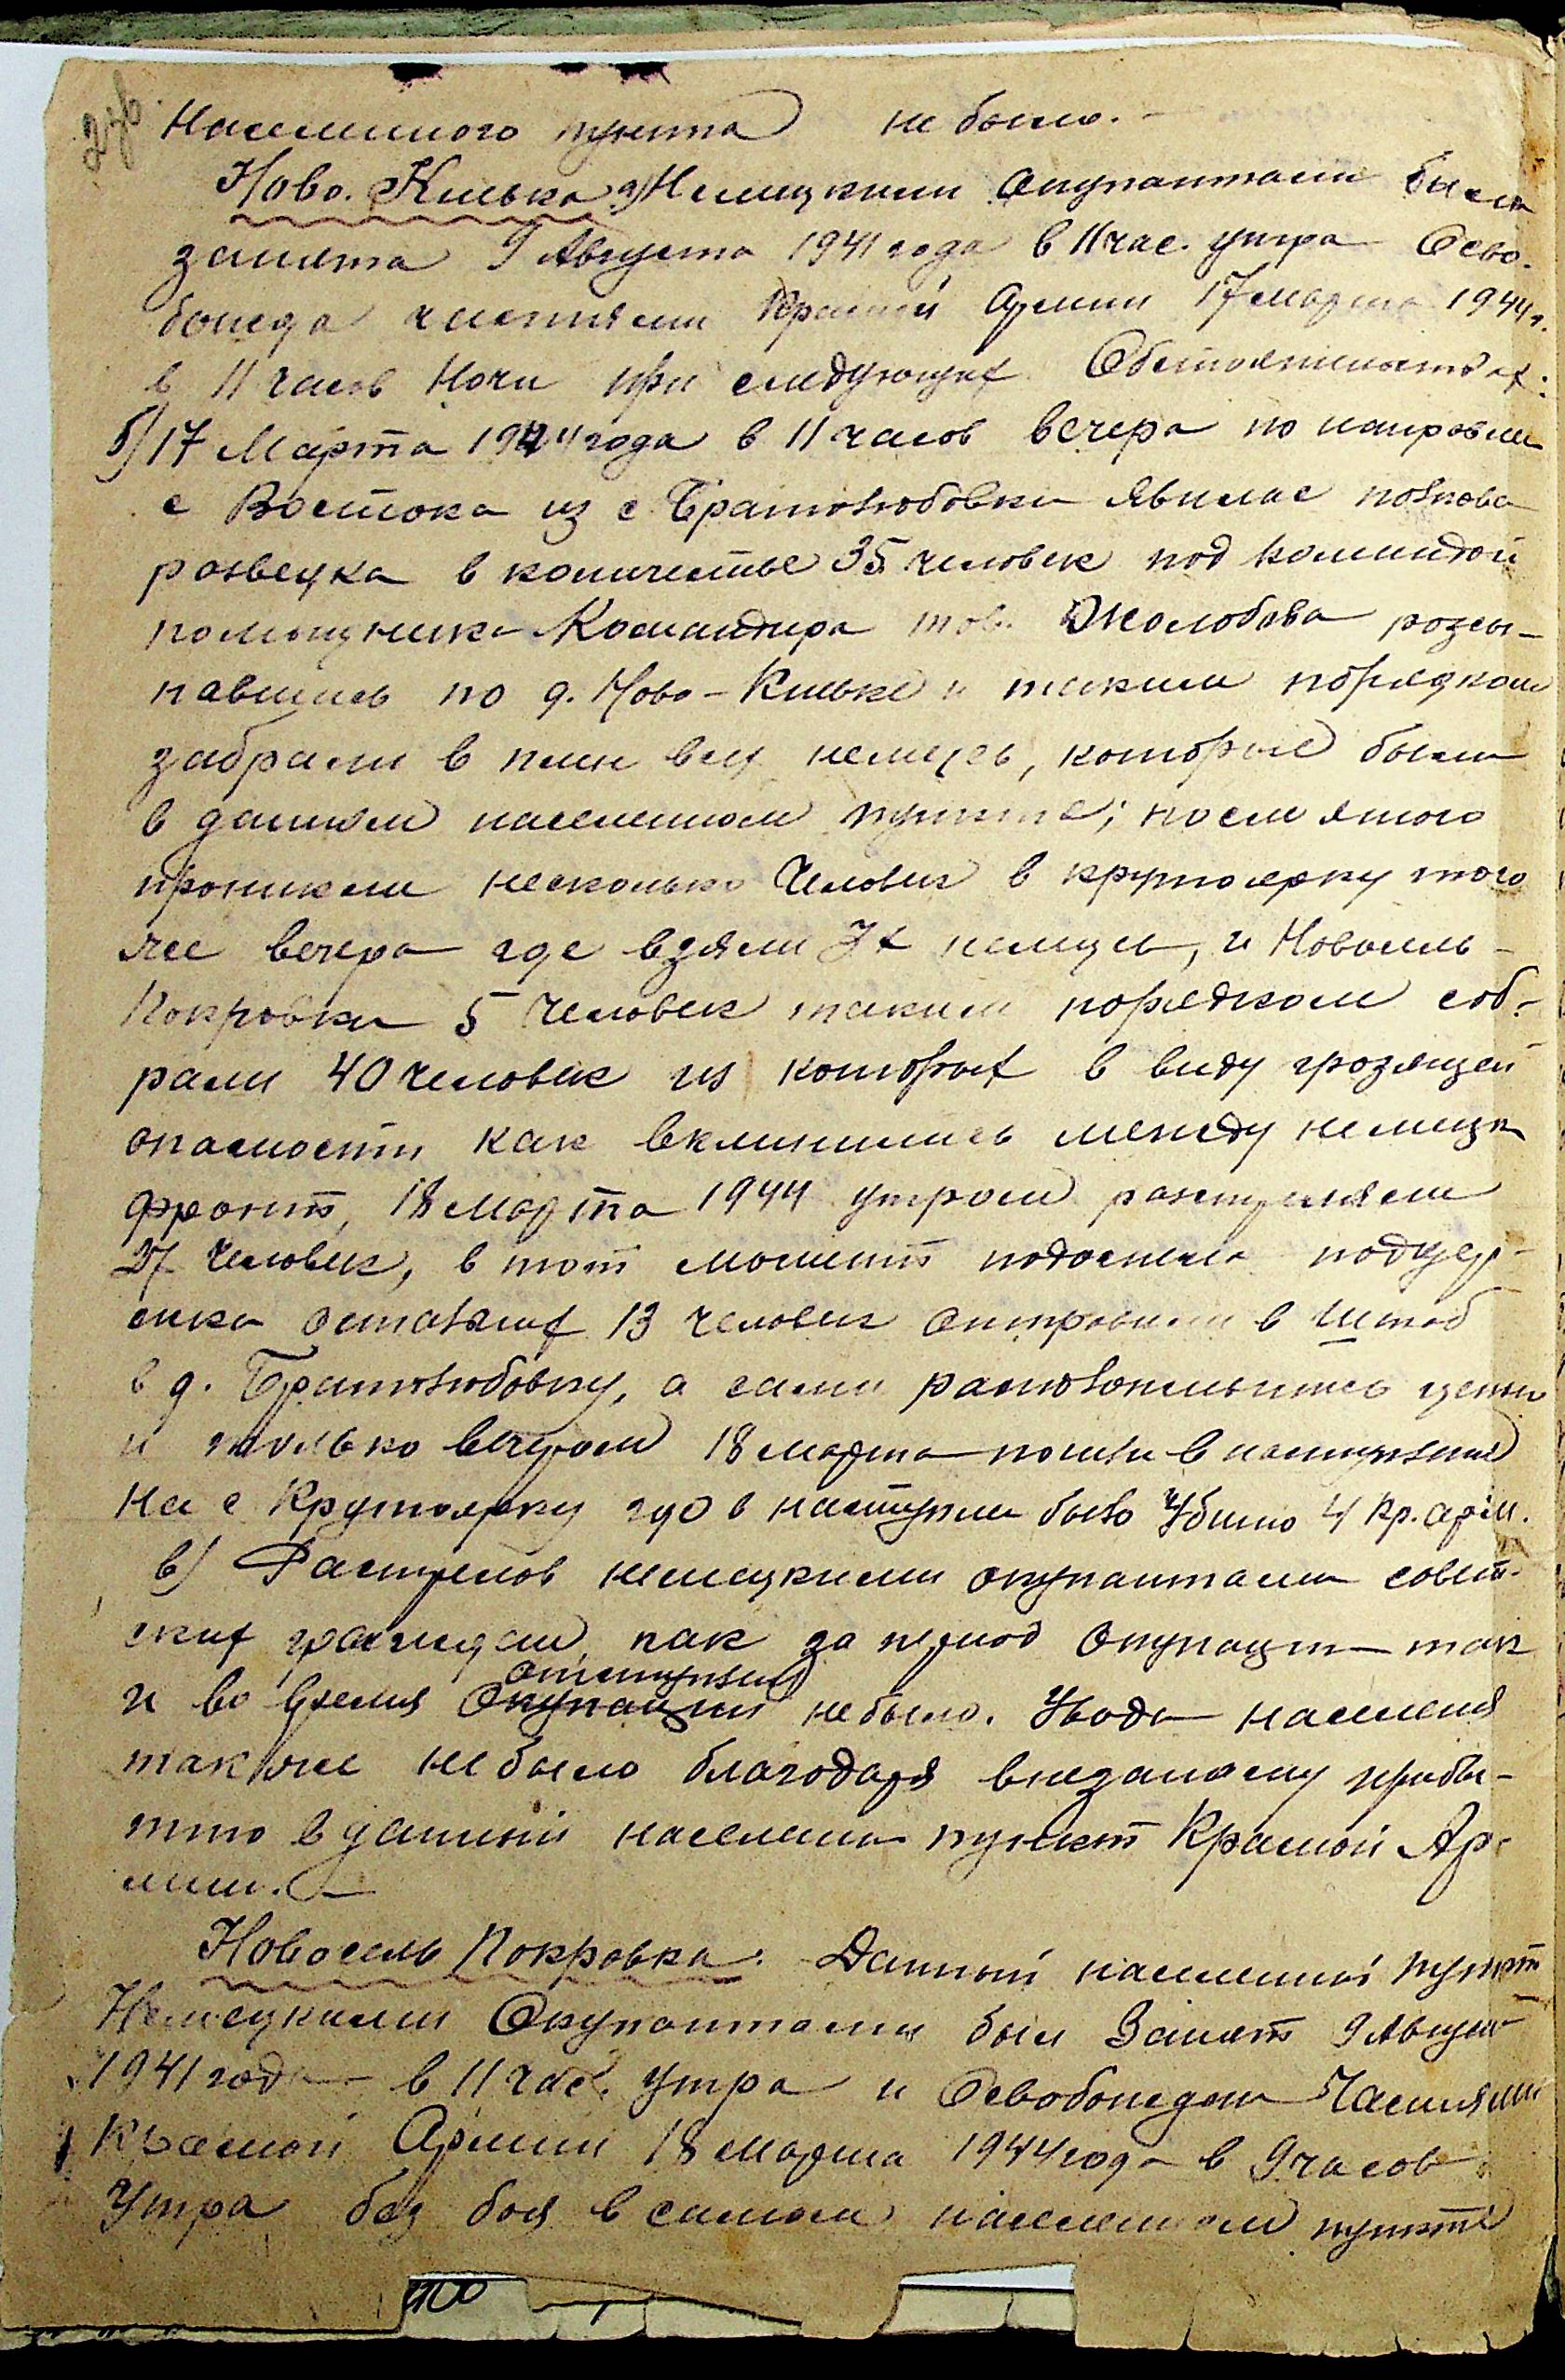 населенного пункта не было. -
Ново. Килька а) Немецкими Окупантами была
занята 9 Августа 1941 года в 11 час. утра Осво-
божда частями Красной Армии 17 марта 1944 г.
в 11 часов Ночи при следующих Обстоятельствах:
б) 17 Марта 1944 года в 11 часов вечера по направлен
с Востока из с Братолюбовки явилас полкова
розведка в количестве 35 человек под командой
помощника Командира тов. розсы-
павшись по д. Ново-Кильке и таким порядком
забрали в плен всех немцев, которые были
в данном населенном пункте; после этого
проникли несколько Человек в крутоярку того
же вечера где взяли немцев, и Новосель-
Покровки 5 Человек таким порядком соб-
рали 40 человек из которых в виду грозящей
опасности как вклинились между немецк
фронт, 18 марта 1944 утром расстреляли
27 Человек, в тот момент подоспела поддер-
жка остальных 13 человек отправили в Штаб
в д. Братолюбовку, а сами
и только вечером 18 марта пошли в наступление
на с Крутоярку где в наступлен было Убито 4 Кр. арм.
в) Растрелов немецкими окупантами совет-
ских граждан как за период Окупации так
отступления
и во время Окупации не было. Увода населеня
также не было благодаря внезапному прибы-
тию в данный населени пункт Красной Ар-
мии. -
Новосель Покровка. Данный населенный пункт
Немецкими Окупантами был Занят 9 Август
1941 года в 11 час. утра и Освобожден Частями
Красной Армии 18 марта 1944 года в 9 часов
Утра без боя в самом населенном пункте
100